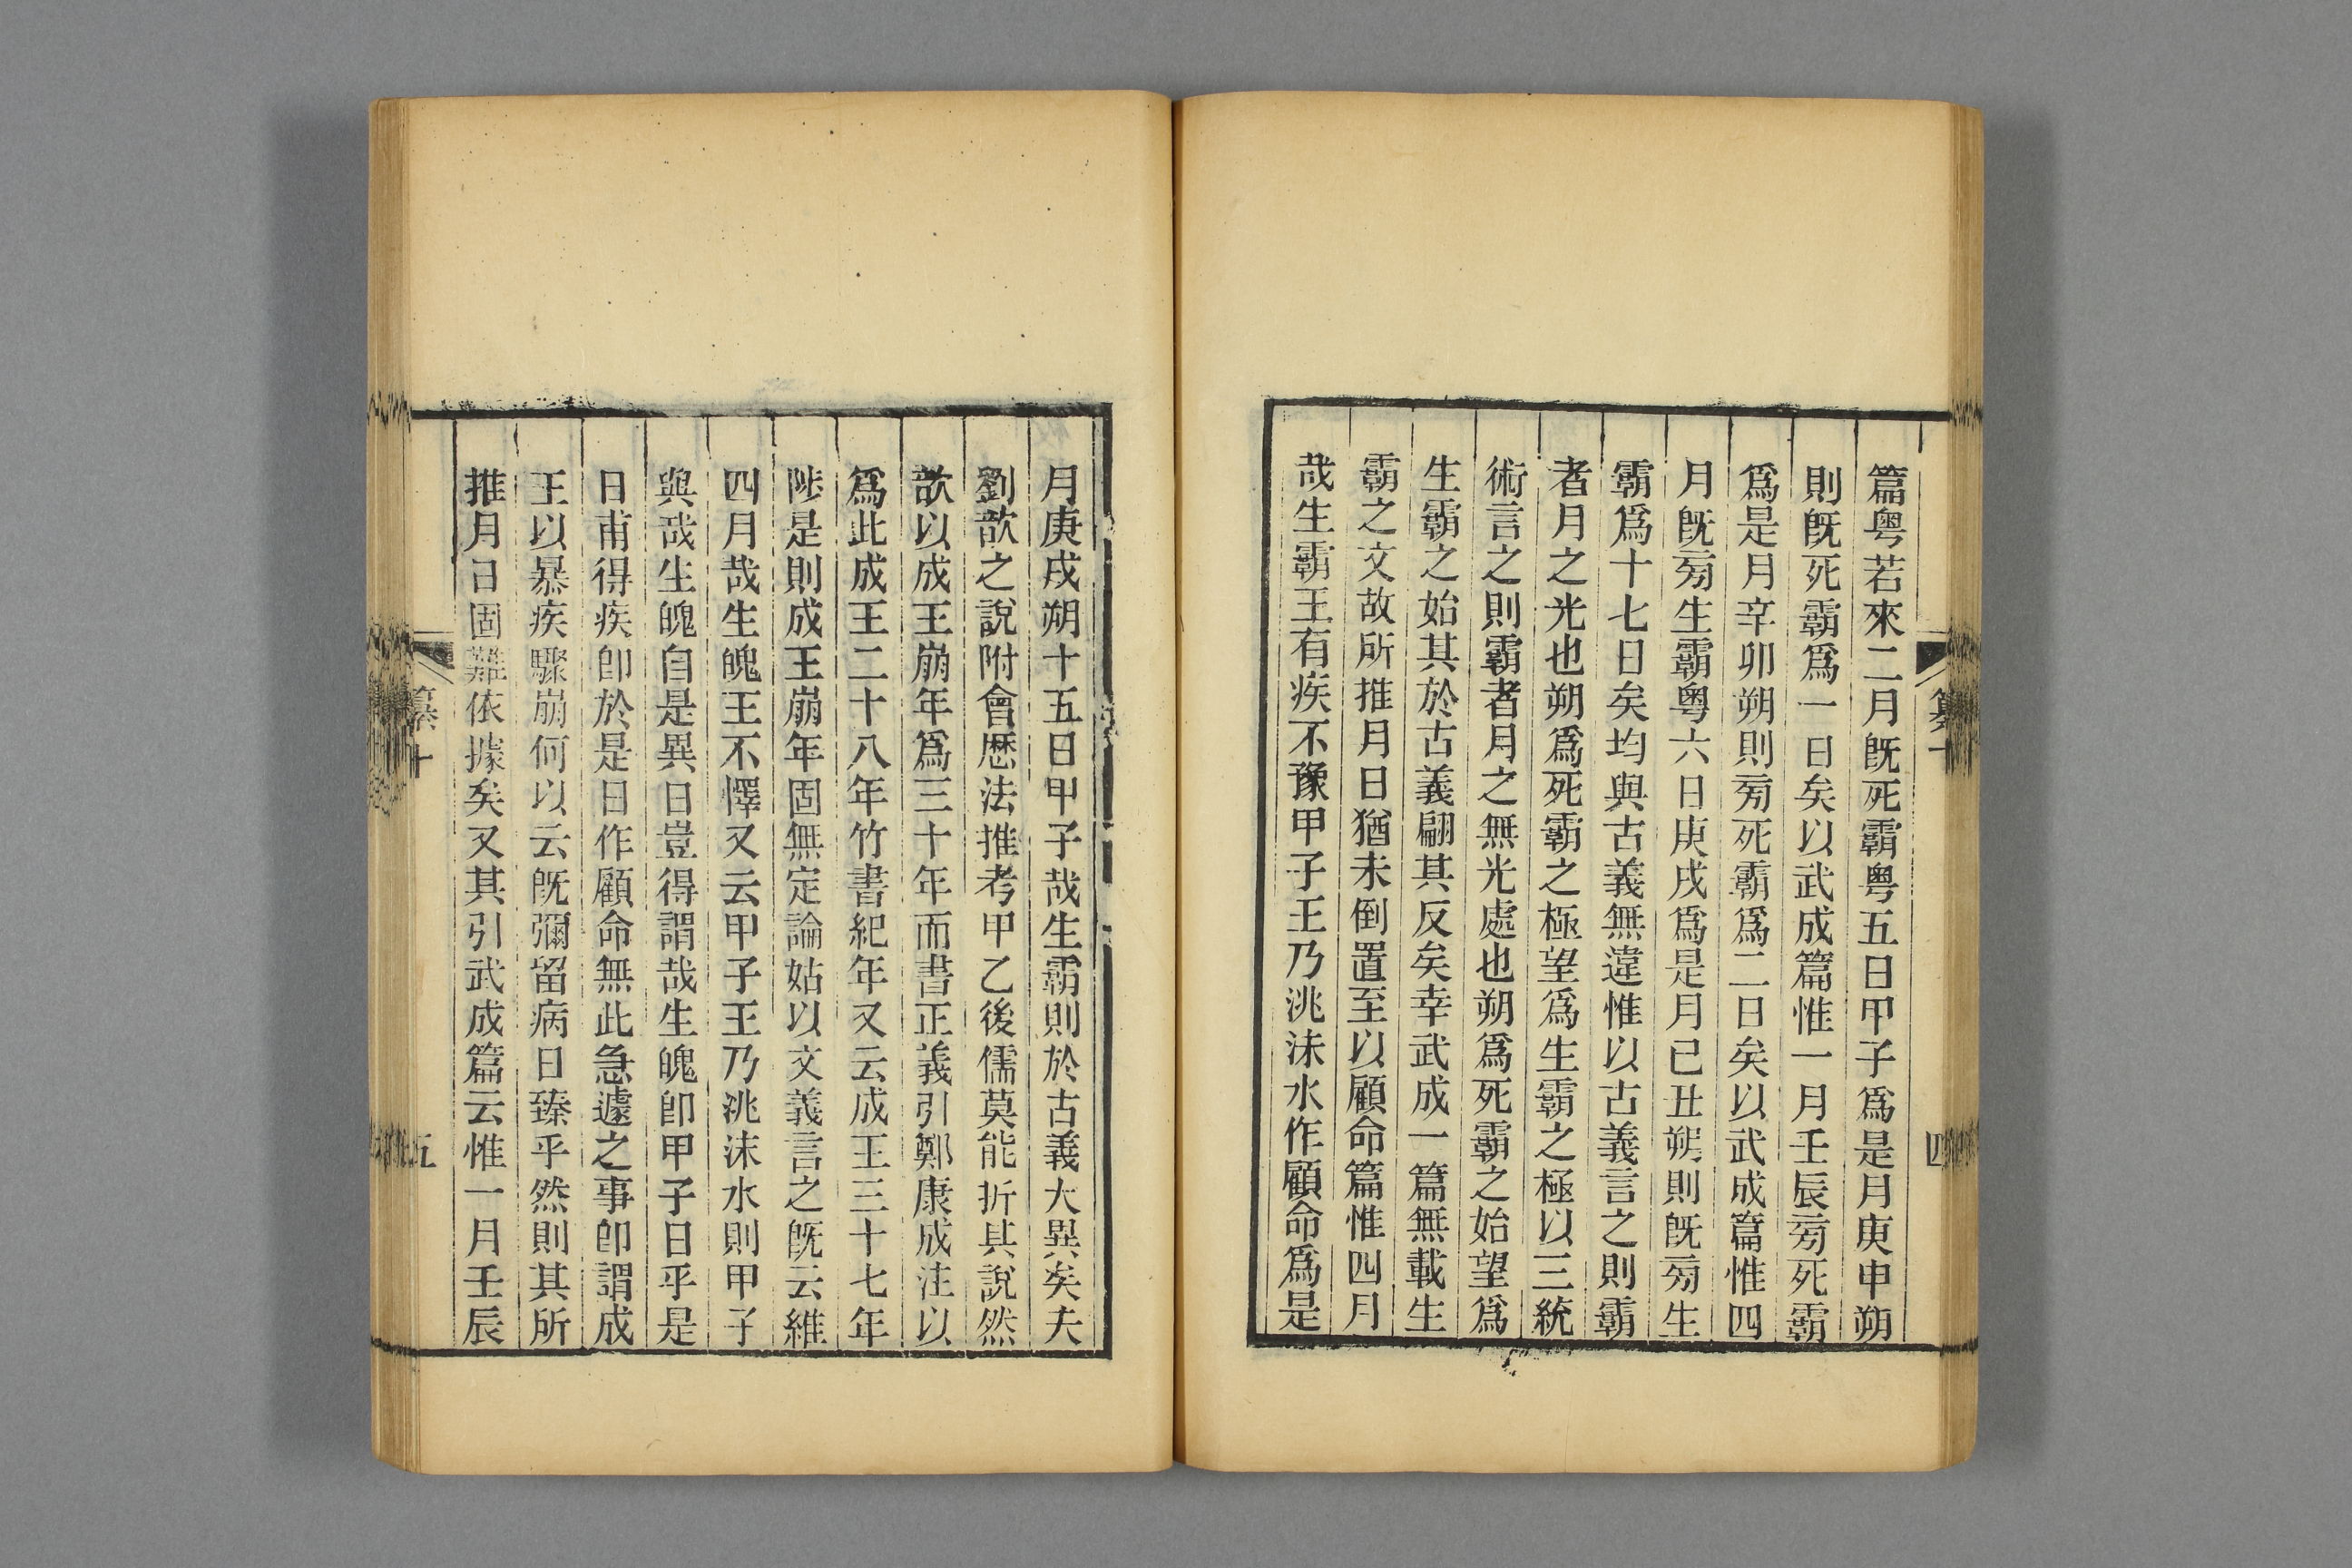 篇粤若來二月旣死霸粤五日甲子爲是月庚申朔
則旣死霸爲一日矣以武成篇惟一月壬辰㫄死霸
爲是月辛卯朔則㫄死霸爲二日矣以武成篇惟四
月旣㫄生霸粤六日庚戌爲是月己丑朔則旣㫄生
霸爲十七日矣均與古義無違惟以古義言之則霸
者月之光也朔爲死霸之極望爲生霸之極以三統
術言之則霸者月之無光處也朔爲死霸之始望爲
生霸之始其於古義翩其反矣幸武成一篇無載生
霸之文故所推月日猶未倒置至以顧命篇惟四月
哉生霸王有疾不豫甲子王乃洮沬水作顧命爲是
纂十
四
月庚戌朔十五日甲子哉生霸則於古義大異矣夫
劉歆之說附會厯法推考甲乙後儒莫能折其說然
歆以成王崩年爲三十年而書正義引鄭康成注以
爲此成王二十八年竹書紀年又云成王三十七年
陟是則成王崩年固無定論姑以文義言之旣云維
四月哉生魄王不懌又云甲子王乃洮沬水則甲子
與哉生魄自是異日豈得謂哉生魄卽甲子日乎是
日甫得疾卽於是日作顧命無此急遽之事卽謂成
王以暴疾驟崩何以云旣彌留病日臻乎然則其所
推月日固難依據矣又其引武成篇云惟一月壬辰
纂十
五